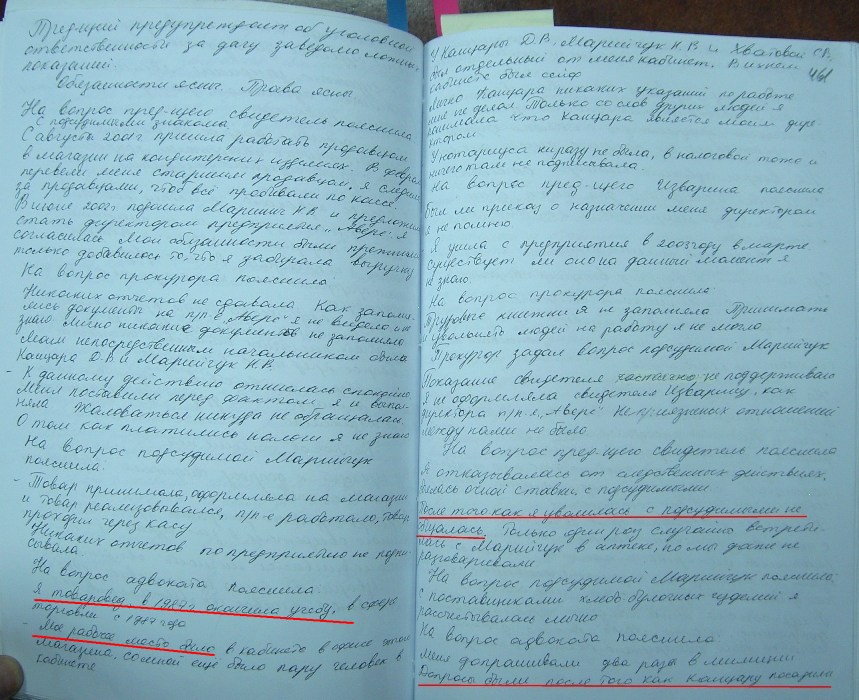 Пред-щий предупреждает об уголовной
ответственности за дачу заведомо ложных
показаний.
Обязанности ясны. Права ясны
На вопрос пред-щего свидетель пояснила
С подсудимыми знакома.
С августа 2001г. пришла работать продавцом
в магазин на кондитерских изделиях. В феврале
перевели меня старшим продавцом, я следила
за продавцами, чтоб всё пробивали по кассе.
В июле 2002г. подошла Марийчук Н.В. и предложила
стать директором предприятия „Аверс". Я
согласилась. Мои обязанности были прежними
только добавилось то, что я забирала выручку
На вопрос прокурора пояснила
Никаких отчетов не сдавала. Как запол-
лись документы на пр-е „Аверс" я не видела и не
знаю. Лично никаких документов не заполняла
Моим непосредственным начальником была
Канцара Д.В и Марийчук Н.В.
- К данному действию отнеслась спокойно,
меня поставили перед фактом, я и выпол-
няла. Жаловаться никуда не обращалась.
О том как платились налоги я не знаю
На вопрос подсудимой Марийчук
пояснила.
- Товар принимала, оформляла на магазин
и товар реализовывался, пр-е работало, товар
проходил через кассу
Никаких отчетов по предприятию не подпи-
сывала
На вопрос адвоката пояснила.
Я товаровед, в 1987г окончила учебу, в сфере
торговли с 1987 года
- Мое рабочее место было в кабинете в офисе
магазина, со мной ещё было пару человек в
кабинете
У Канцары Д.В, Марийчук Н.В. и Хватовой С.В.
был отдельный от меня кабинет. В их
кабинете был сейф
461
Лично Канцара никаких указаний по работе
мне не делал. Только со слов других людей я
понимала что Канцара является моим дире-
ктором
У нотариуса ни разу не была, в налоговой тоже и
ничего там не подписывала
На вопрос пред-щего Изварина пояснила
Был ли приказ о назначении меня директором
я не помню
Я ушла с предприятия в 2003году в марте
существует ли оно на данный момент я
не знаю.
На вопрос прокурора пояснила:
Трудовые книжки я не заполняла. Принимать
и увольнять людей на работу я не могла
Прокурор задал вопрос подсудимой Марийчук
Показание свидетеля частично не поддерживаю
Я не оформляла свидетеля Изварину, как
директора пр-я „Аверс" Неприязненных отношений
между нами не было
На вопрос пред-щего свидетель пояснила
Я отказывалась от следственных действиях,
очной ставки, с подсудимыми
После того как я уволилась с подсудимыми не
общалась. Только один раз случайно встрети-
лась с Марийчук в аптеке, но мы даже не
разговаривали
На вопрос подсудимой Марийчук пояснила:
С поставщиками хлебо булочных изделий я
рассчитывалась лично
На вопрос адвоката пояснила:
Меня допрашивали два раза в милиции
Допросы были после того как Канцару посадили